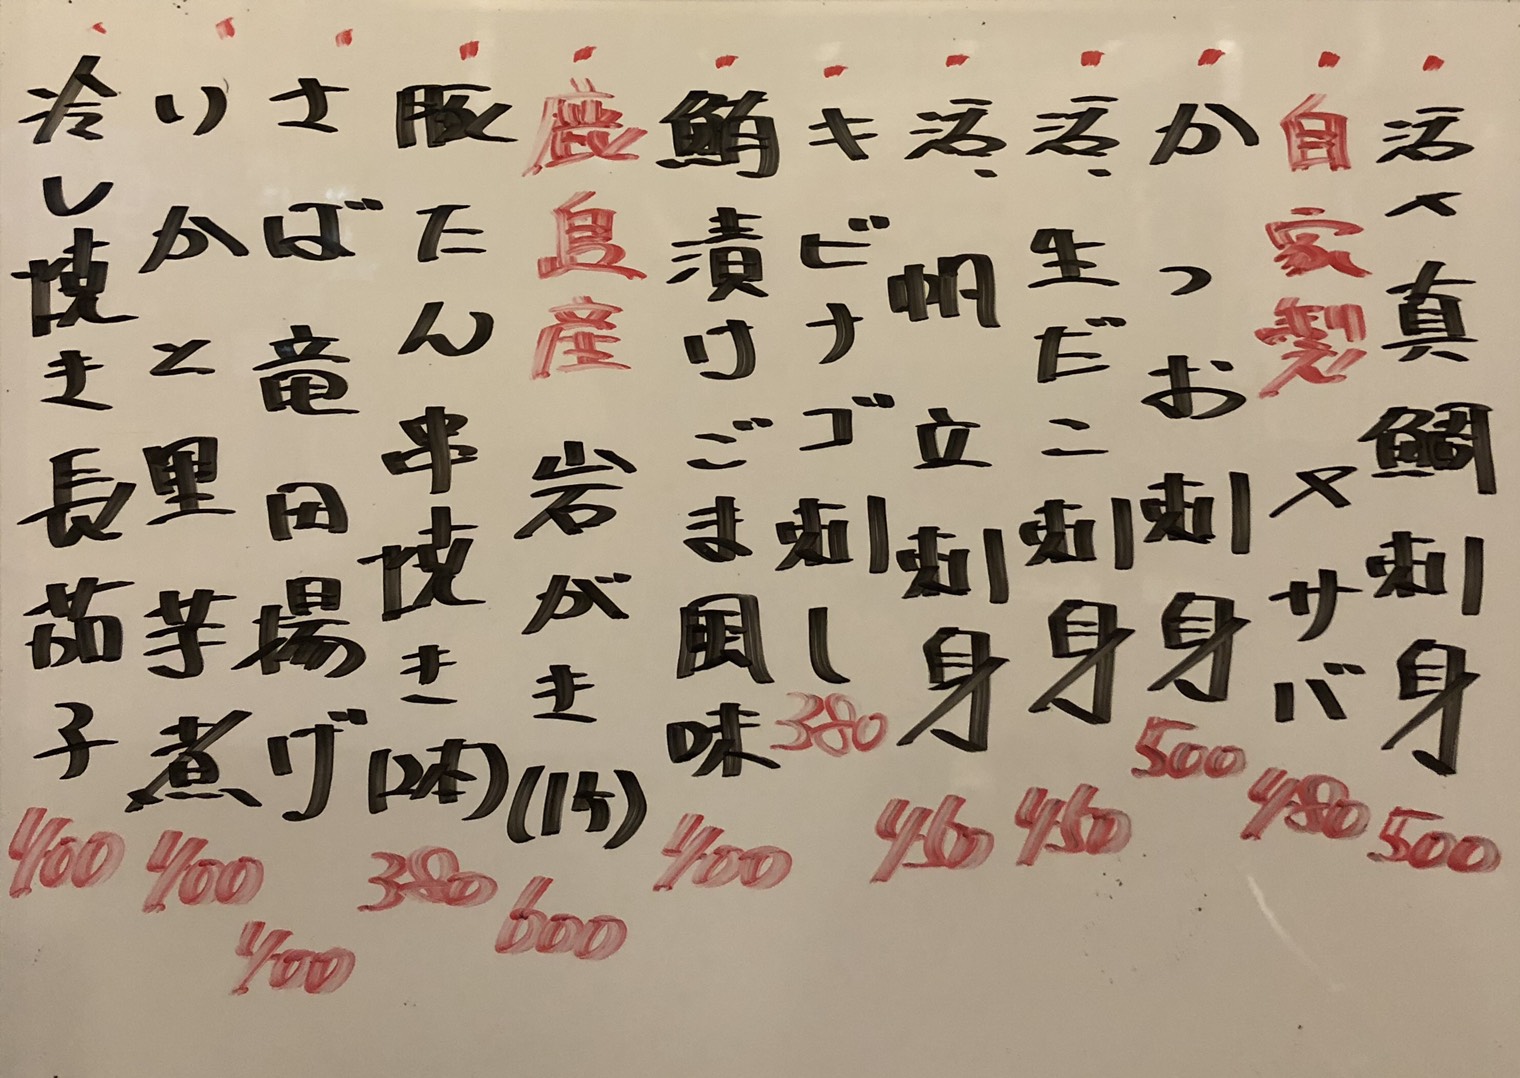 ・活〆真鯛刺身 500
・自家製〆サバ 480
・かつお刺身 500
・活、生だこ刺身 450
・活、帆立刺身 450
・キビナゴ刺し 380
・鮪漬けごま風味 400
・鹿島産 岩がき(1ケ) 600
・豚たん串焼き(2本) 380
・さば竜田揚げ 400
・いかと里芋煮 400
・冷し焼き長茄子 400